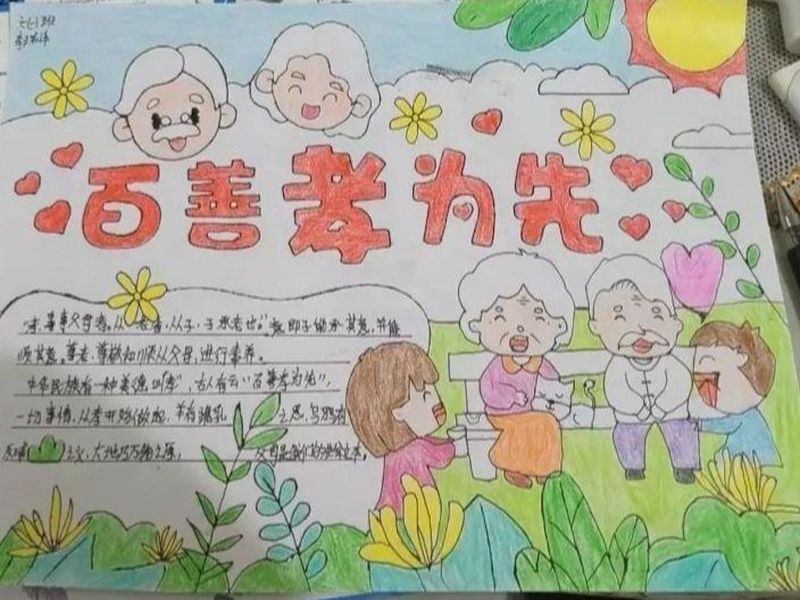 六(一)班
百善孝为先
"孝,善事父母者。从老省,从子,子承老也。",即子能承其意,并能
顺其意。尊老、尊敬和顺从父母,进行奉养。
中华民族有一种美德叫"孝",古人有云"百善孝为先",
一切事情,从孝开始做起,羊有跪乳之恩,乌鸦有
反哺之义,大地乃万物之源,父母是我们的